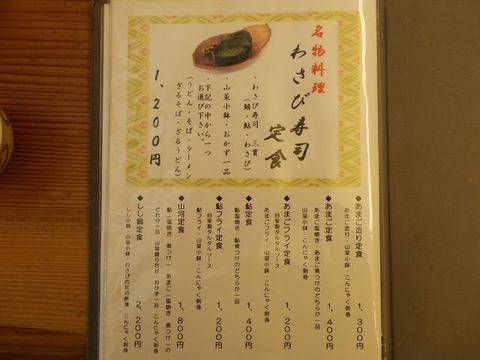 名物料理
わさび寿司
定食
・わさび寿司　三貫
(鯖・鮎・わさび)
・山菜小鉢・おかず一品
・下記の中から一つ
お選び下さい。
(うどん・そば・ラーメン
ざるそば・ざるうどん)
1,200円
◆あまご造り定食
あまご造り・山菜小鉢・こんにゃく刺身
1,300円
◆あまご定食
あまご塩焼き・あまご煮つけのどちらか一品
山菜小鉢・こんにゃく刺身
1,400円
◆あまごフライ定食
自家製タルタルソース
あまごフライ・山菜小鉢・こんにゃく刺身
1,200円
◆鮎定食
鮎塩焼き・鮎煮つけのどちらか一品
山菜小鉢・こんにゃく刺身
1,400円
◆鮎フライ定食
自家製タルタルソース
鮎フライ・山菜小鉢・こんにゃく刺身
1,200円
◆山河定食
鮎(塩焼き・煮つけ)・あまご(塩焼き・煮つけ)の
どれか一品 山菜盛り合せ・おかず一品・こんにゃく刺身
1,800円
◆しし鍋定食
しし小鍋・山菜小鉢・わさびの花の酢漬・こんにゃく刺身
2,200円